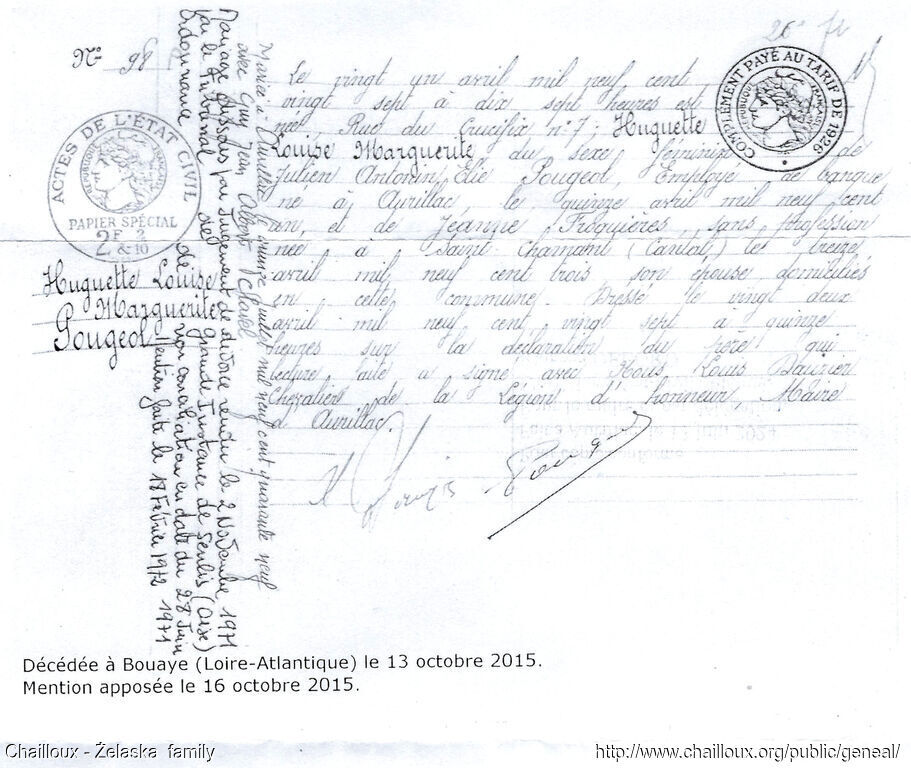 N° 98
26
ACTES DE L'ÉTAT CIVIL
RÉPUBLIQUE FRANÇAISE
PAPIER SPÉCIAL
2F & 2/10
COMPLÉMENT PAYÉ AU TARIF DE 1926
RÉPUBLIQUE FRANÇAISE
Huguette Louise
Marguerite
Pougeol
Le vingt un avril mil neuf cent
vingt sept à dix sept heures est
née, Rue du Crucifix n°7, Huguette
Louise Marguerite du sexe féminin de
Julien Antonin Elie Pougeol, Employé de banque
né à Aurillac, le quinze avril mil neuf cent
un, et de Jeanne Froquières, sans profession
née à Saint-Chamant (Cantal) le treize
avril mil neuf cent trois son épouse domiciliés
en cette commune. Dressé le vingt deux
avril mil neuf cent vingt sept à quinze
heures sur la déclaration du père qui
lecture faite a signé avec Nous, Louis Dauzier
Chevalier de la Légion d'honneur Maire
d'Aurillac.
Marié à Aurillac le onze juillet mil neuf cent quarante neuf
avec Guy Jean Albert Vchatel
Mariage dissous par Jugement de divorce rendu le 2 Novembre 1971
par le Tribunal de grande Instance de Senlis (Oise)
ordonnance de non conciliation en date du 28 Juin 1971
Mention faite le 18 Février 1972
Décédée à Bouaye (Loire-Atlantique) le 13 octobre 2015.
Mention apposée le 16 octobre 2015.
Chailloux - Żelaska family
http://www.chailloux.org/public/geneal/